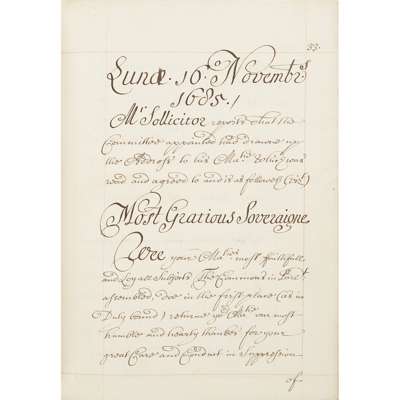 33.
Lunæ. 16.º Novembr.s
1685./
Mr. Sollicitor reports that the
Committee appointed had drawne up
the Address to his Matie. which was
read and agreed to and is as followeth (vizt)
Most Gratious Soveraigne
Wee your Maties most faithfull
and Loyall Subjects The Commons in Parlt
assembled, doe in the first place (as in
Duty bound) returne yor Matie our most
humble and hearty thankes for your
great Care and Conduct in Suppression
of-